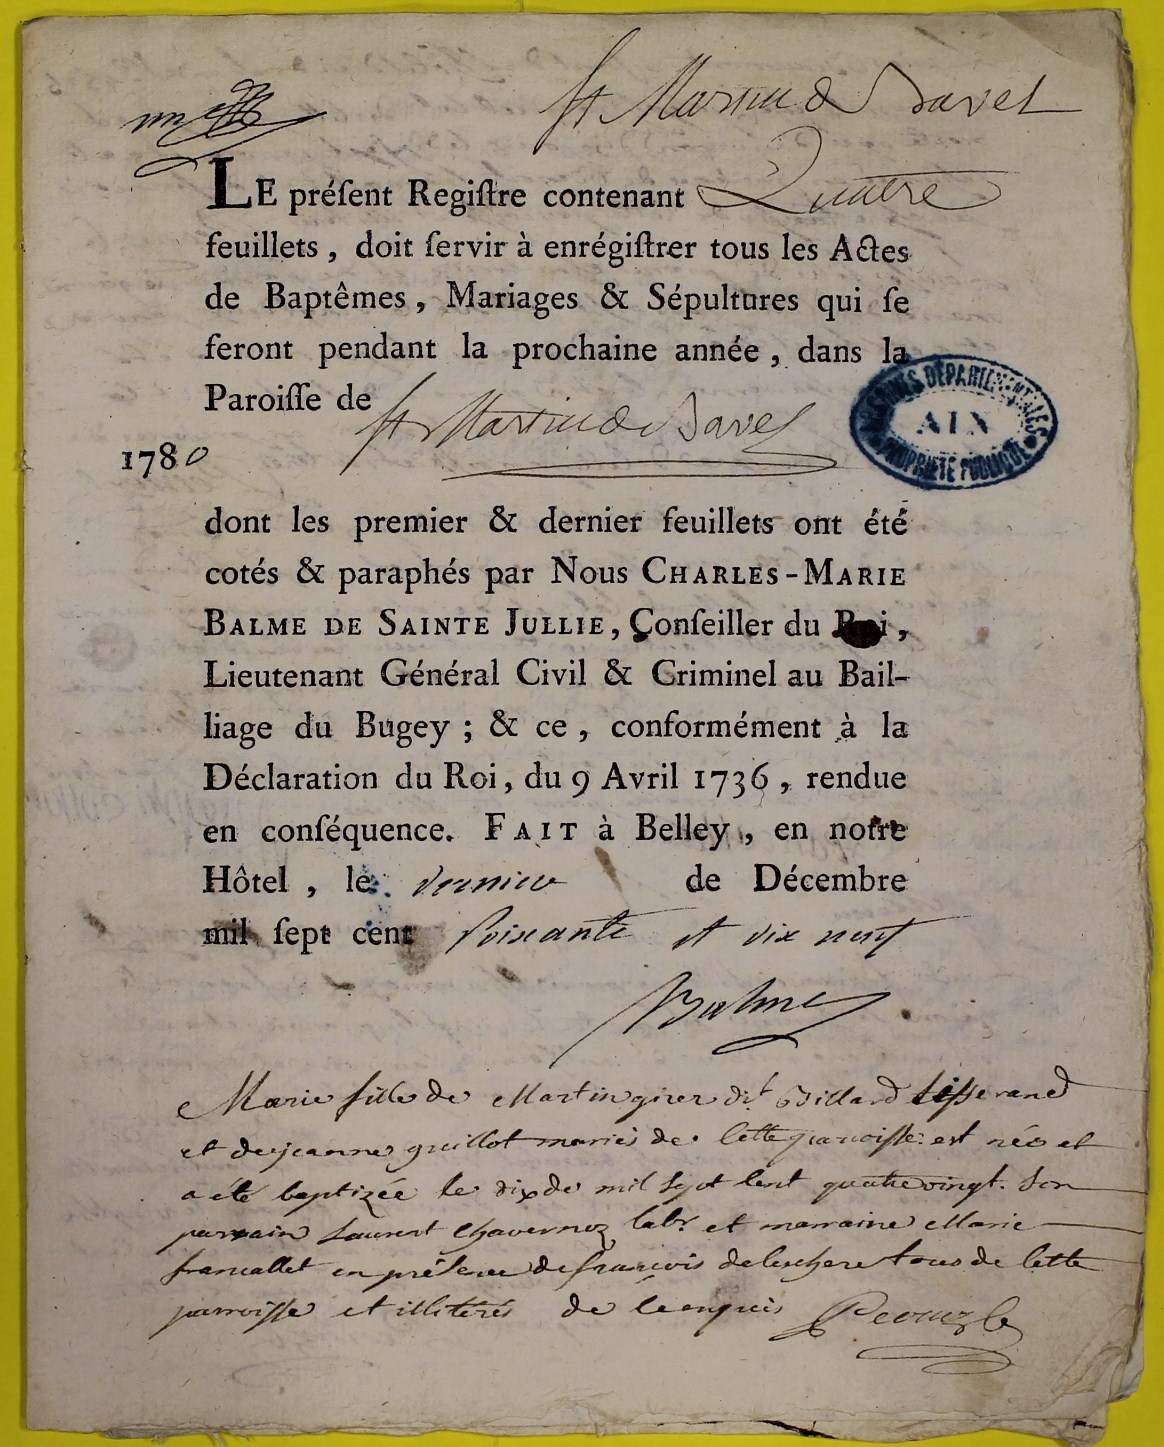 un
St Martin de Bavel
LE préſent Regiſtre contenant Quatre
feuillets, doit ſervir à enrégiſtrer tous les Actes
de Baptêmes, Mariages & Sépultures qui ſe
feront pendant la prochaine année, dans la
Paroiſſe de St Martin de Bavel
ARCHIVES DÉPARTEMENTALES
AIN
PROPRIÉTÉ PUBLIQUE
1780
dont les premier & dernier feuillets ont été
cotés & paraphés par Nous CHARLES-MARIE
BALME DE SAINTE JULLIE, Conſeiller du Roi,
Lieutenant Général Civil & Criminel au Bail-
liage du Bugey; & ce, conformément à la
Déclaration du Roi, du 9 Avril 1736, rendue
en conſéquence. FAIT à Belley, en notre
Hôtel, le dernier de Décembre
mil ſept cent soixante et dix neuf
Balme
Marie fille de Martin girer dit Billard tisserand
et de jeanne guillot mariés de cette paroisse est née et
a été baptizée le dix de mil sept cent quatre vingt. Son
parrain Laurent Chavernoz labr. et marraine Marie
francallet en présence de françois de tous de cette
parroisse et illiterés de ce enquis